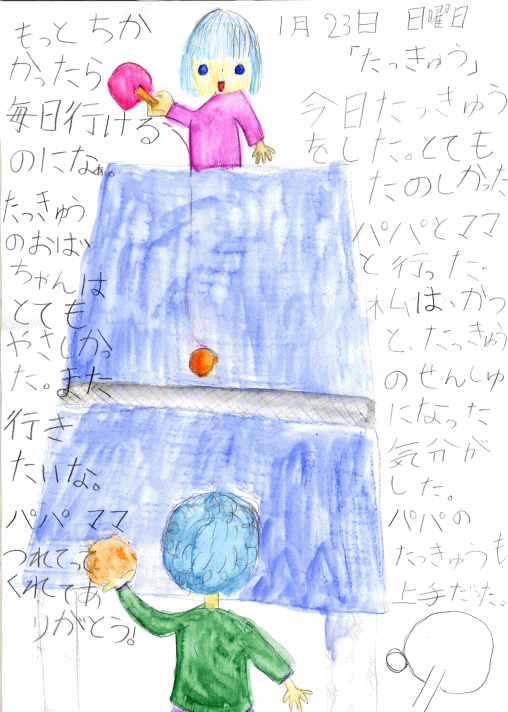 1月23日 日曜日
「たっきゅう」
今日たっきゅう
をした。とても
たのしかった
パパとママ
と行った。
私は、かっ
と、たっきゅう
のせんしゅ
になった
気分が
した。
パパの
たっきゅうも
上手だった。
もっとちか
かったら
毎日行ける
のになぁ。
たっきゅう
のおば
ちゃんは
とても
やさしかっ
た。また
行き
たいな。
パパママ
つれてって
くれてあ
りがとう!